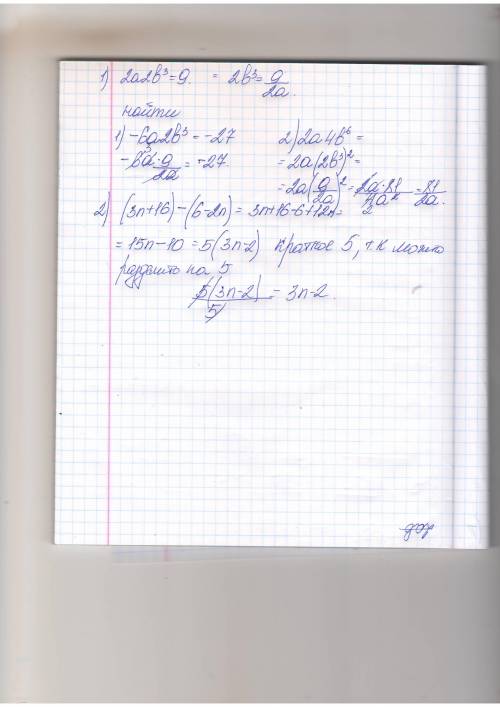 1) 2a2b³=9. = 2b³=9/2a.
найти
1) -6a2b³=-27 2) 2a4b⁶=
-6a·9/2a=-27. =2a(2b³)²=
3
=2a(9/2a)²=2a·81/4a²=81/2a.
2
2) (3n+16)-(6-2n)=3n+16-6+12n=
=15n-10=5(3n-2) Кратное 5, т.к можно
разделить на 5
5(3n-2)/5=3n-2.